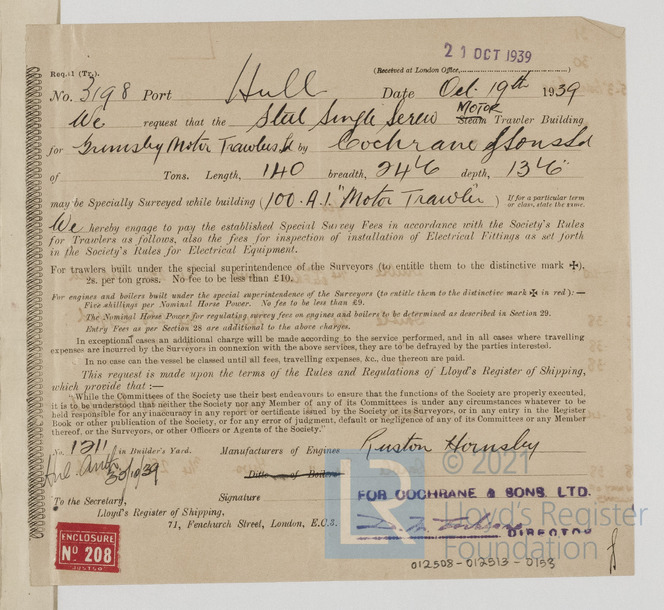 21 OCT 1939
Req. 1 (Tr.).
(Received at London Office,
No. 3198 Port Hull Date Oct. 19th 1939
We request that the Steel Single Screw MOTOR Steam Trawler Building
for Grimsby Motor Trawlers Ld by Cochrane & Sons Ld
of Tons. Length, 140 breadth, 24'6 depth, 13'6"
may be Specially Surveyed while building (100.A.1 "Motor Trawler") If for a particular term or class, state the same.
We hereby engage to pay the established Special Survey Fees in accordance with the Society's Rules
for Trawlers as follows, also the fees for inspection of installation of Electrical Fittings as set forth
in the Society's Rules for Electrical Equipment.
For trawlers built under the special superintendence of the Surveyors (to entitle them to the distinctive mark ✠).
2s. per ton gross. No fee to be less than £10.
For engines and boilers built under the special superintendence of the Surveyors (to entitle them to the distinctive mark ✠ in red):—
Five shillings per Nominal Horse Power. No fee to be less than £9.
The Nominal Horse Power for regulating survey fees on engines and boilers to be determined as described in Section 29.
Entry Fees as per Section 28 are additional to the above charges.
In exceptional cases an additional charge will be made according to the service performed, and in all cases where travelling
expenses are incurred by the Surveyors in connexion with the above services, they are to be defrayed by the parties interested.
In no case can the vessel be classed until all fees, travelling expenses, &c., due thereon are paid.
This request is made upon the terms of the Rules and Regulations of Lloyd's Register of Shipping,
which provide that:—
"While the Committees of the Society use their best endeavours to ensure that the functions of the Society are properly executed,
it is to be understood that neither the Society nor any Member of any of its Committees is under any circumstances whatever to be
held responsible for any inaccuracy in any report or certificate issued by the Society or its Surveyors, or in any entry in the Register
Book or other publication of the Society, or for any error of judgment, default or negligence of any of its Committees or any Member
thereof, or the Surveyors, or other Officers or Agents of the Society."
No. 1211 in Builder's Yard. Manufacturers of Engines Ruston Hornsby
30/10/39
Ditto of Boilers
To the Secretary, Signature FOR COCHRANE & SONS. LTD.
Lloyd's Register of Shipping,
71, Fenchurch Street, London, E.C.3.
DIRECTOR
ENCLOSURE
No 208
012508-012513-0153
LR © 2021
Lloyd's Register
Foundation